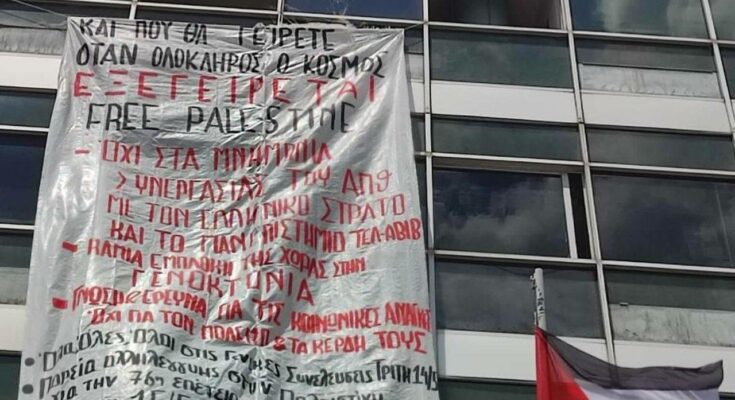 ΚΑΙ ΠΟΥ ΘΑ ΓΕΙΡΕΤΕ
ΟΤΑΝ ΟΛΟΚΛΗΡΟΣ Ο ΚΟΣΜΟΣ
ΕΞΕΓΕΙΡΕΤΑΙ
FREE PALESTINE
- ΟΧΙ ΣΤΑ ΜΝΗΜΟΝΙΑ
ΣΥΝΕΡΓΑΣΙΑΣ ΤΟΥ ΑΠΘ
ΜΕ ΤΟΝ ΕΛΛΗΝΙΚΟ ΣΤΡΑΤΟ
ΚΑΙ ΤΟ ΠΑΝΕΠΙΣΤΗΜΙΟ ΤΕΛ-ΑΒΙΒ
- ΚΑΜΙΑ ΕΜΠΛΟΚΗ ΤΗΣ ΧΩΡΑΣ ΣΤΗΝ
ΓΕΝΟΚΤΟΝΙΑ
- ΓΝΩΣΗ & ΕΡΕΥΝΑ ΓΙΑ ΤΙΣ ΚΟΙΝΩΝΙΚΕΣ ΑΝΑΓΚΕΣ
ΟΧΙ ΓΙΑ ΤΟΝ ΠΟΛΕΜΟ & ΤΑ ΚΕΡΔΗ ΤΟΥΣ
· Όλα, Όλες, Όλοι στις Γενικές Συνελεύσεις ΤΡΙΤΗ 14/5
· Πορεία αλληλεγγύης στην Παλαιστίνη
για την 76η επέτειο
15/5